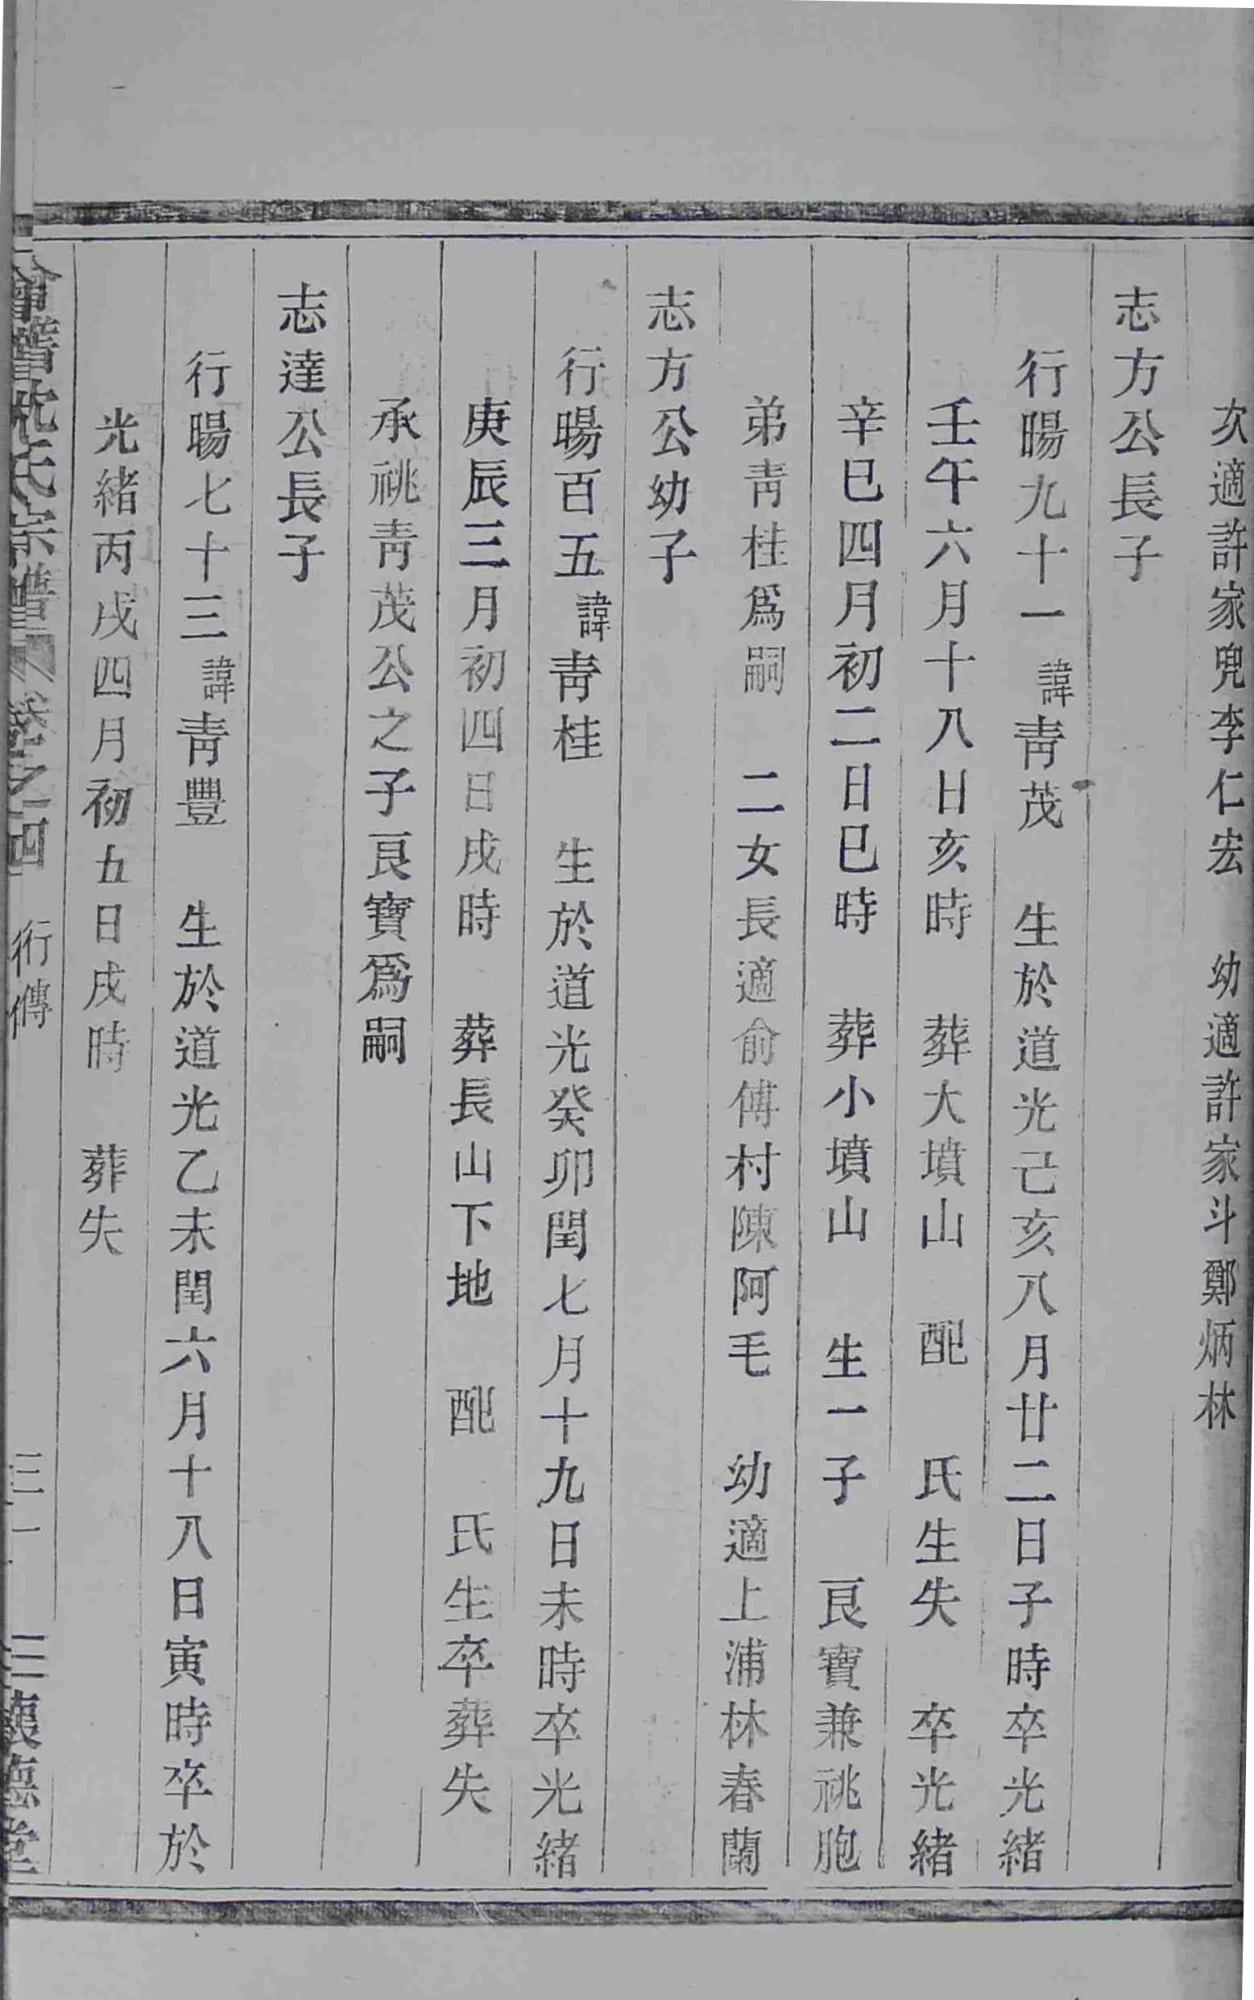 次適許家兜李仁宏　幼適許家斗鄭炳林
志方公長子
行暘九十一諱靑茂　生於道光己亥八月廿二日子時卒光緒
壬午六月十八日亥時　葬大墳山　配　氏生失　卒光緒
辛巳四月初二日巳時　葬小墳山　生一子　良寶兼祧胞
弟靑桂爲嗣　二女長適俞傅村陳阿毛　幼適上浦林春蘭
志方公幼子
行暘百五諱靑桂　生於道光癸卯閏七月十九日未時卒光緒
庚辰三月初四日戌時　葬長山下地　配　氏生卒葬失
承祧靑茂公之子良寶爲嗣
志達公長子
行暘七十三諱靑豐　生於道光乙未閏六月十八日寅時卒於
光緒丙戌四月初五日戌時　葬失
會稽沈氏宗譜　卷之四　行傳　三一　懷德堂